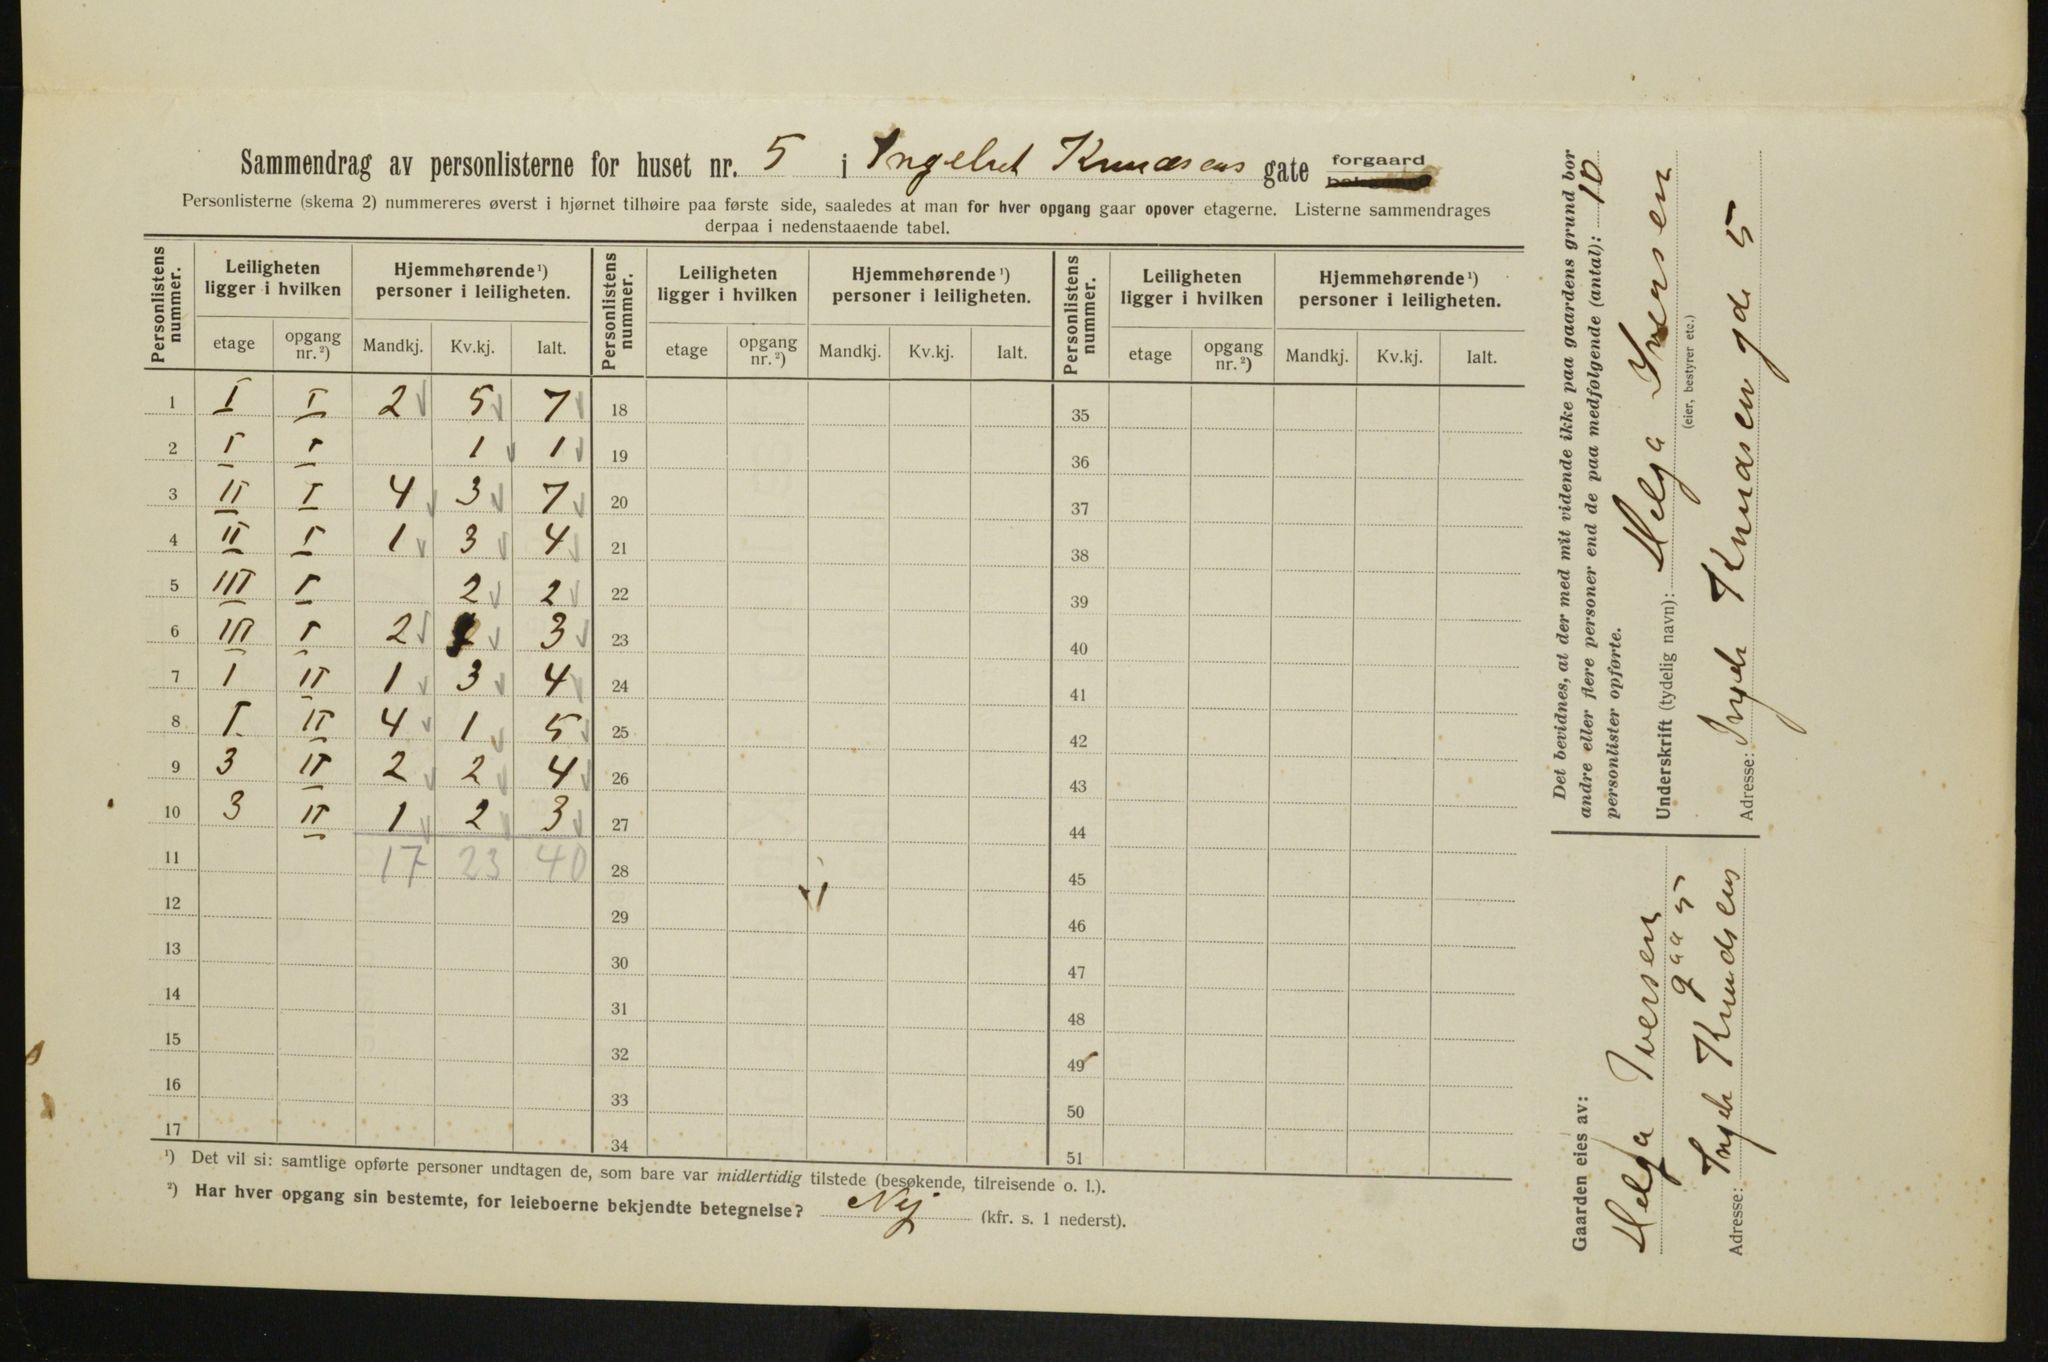 Sammendrag av personlisterne for huset nr. 5 i Ingelbret Knudsens gate forgaard
Personlisterne (skema 2) nummereres øverst i hjørnet tilhøire paa første side, saaledes at man for hver opgang gaar opover etagerne. Listerne sammendrages
derpaa i nedenstaaende tabel.
Personlistens nummer. Leiligheten ligger i hvilken Hjemmehørende ¹) personer i leiligheten. Personlistens nummer. Leiligheten ligger i hvilken Hjemmehørende ¹) personer i leiligheten. Personlistens nummer. Leiligheten ligger i hvilken Hjemmehørende ¹) personer i leiligheten.
etage opgang nr. ²) Mandkj. Kv.kj. Ialt. etage opgang nr. ²) Mandkj. Kv.kj. Ialt. etage opgang nr. ²) Mandkj. Kv.kj. Ialt.
1 I I 2 5 7 18 35
2 I I 1 1 19 36
3 II I 4 3 7 20 37
4 II I 1 3 4 21 38
5 III I 2 2 22 39
6 III I 2 3 23 40
7 I II 1 3 4 24 41
8 I II 4 1 5 25 42
9 3 II 2 2 4 26 43
10 3 II 1 2 3 27 44
11 17 23 40 28 45
12 29 46
13 30 47
14 31 48
15 32 49
16 33 50
17 34 51
¹) Det vil si: samtlige opførte personer undtagen de, som bare var midlertidig tilstede (besøkende, tilreisende o. l.).
²) Har hver opgang sin bestemte, for leieboerne bekjendte betegnelse? Nej (kfr. s. 1 nederst).
Det bevidnes, at der med mit vidende ikke paa gaardens grund bor
andre eller flere personer end de paa medfølgende (antal): 10
personlister opførte.
Underskrift (tydelig navn): Helga Iversen
(eier, bestyrer etc.)
Adresse: Ingeb Knudsen gd. 5
Gaarden eies av:
Helga Iversen
gaa 5
Adresse: Ingeb Knudsens